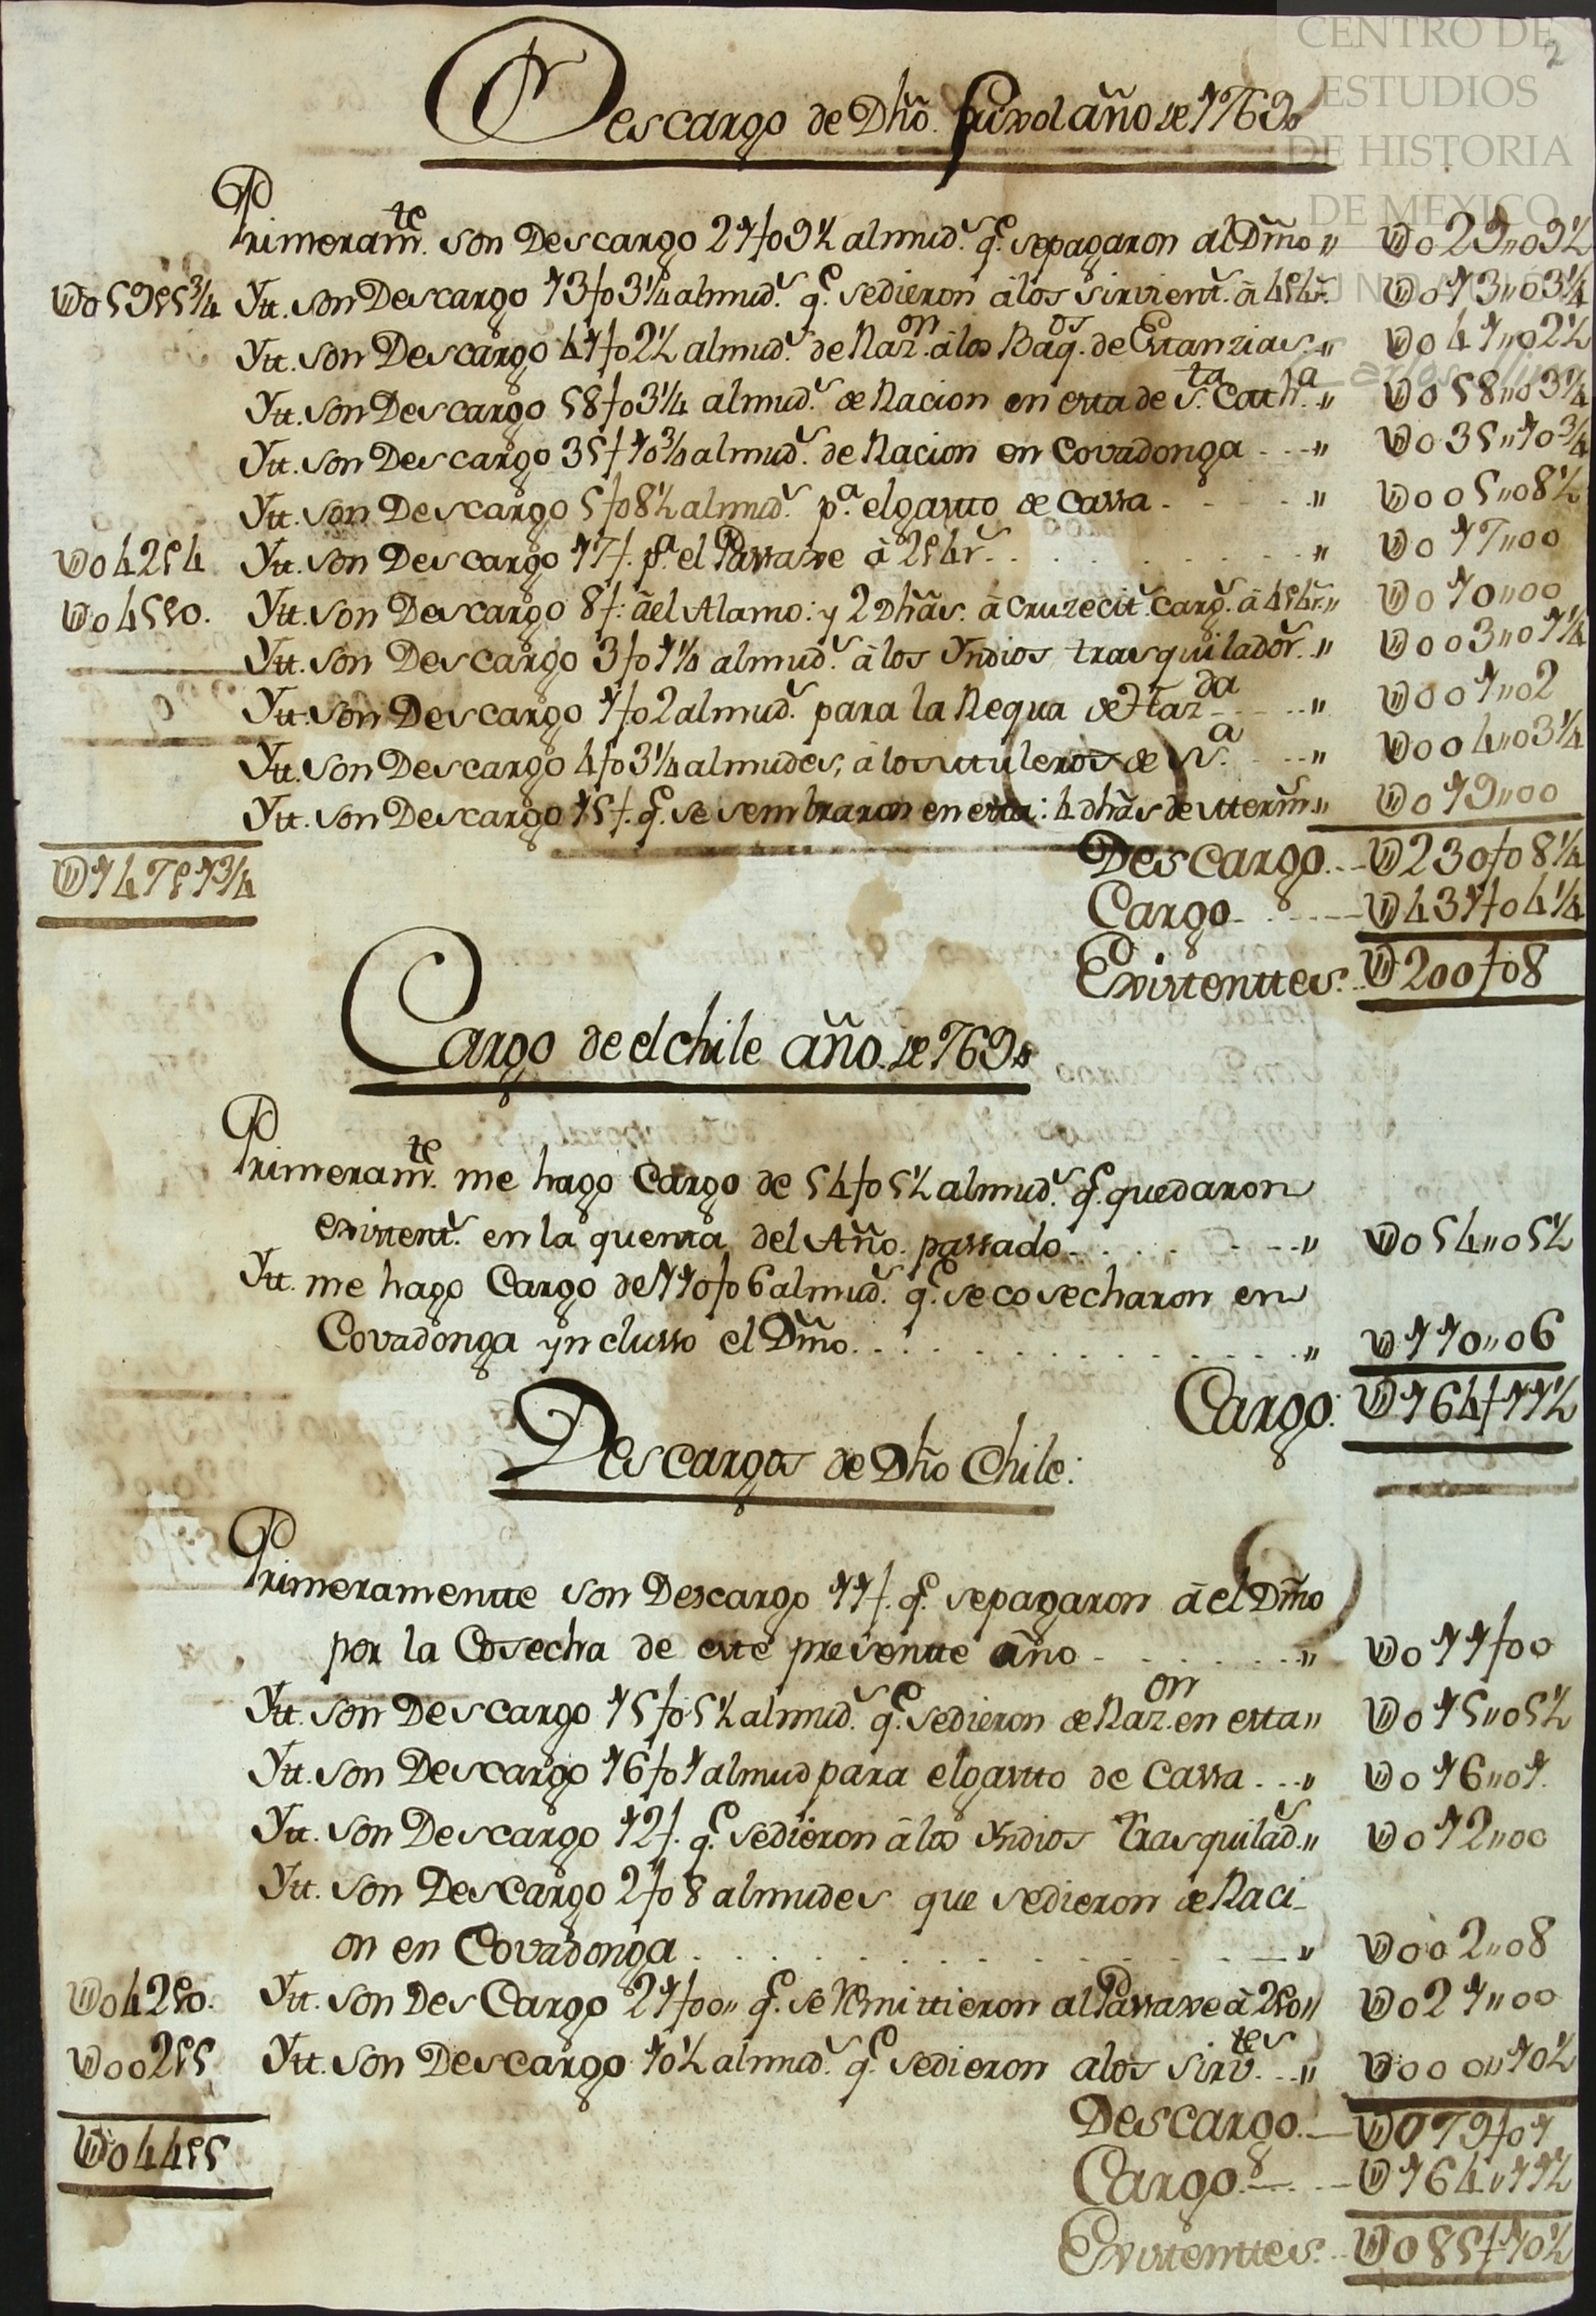 CENTRO DE
ESTUDIOS
DE HISTORIA
DE MEXICO
2
Descargo de Dho. frixol año de 1769
Primeram.te son Descargo 21f09½ almud.s q.e se pagaron al Dmo ,, U021,,09½
U059p5¾ Ytt. son Descargo 13f03¼ almud.s q.e se dieron â los sirvient.s â 4p4r.s U013,,03¼
Ytt. son Descargo 41f02½ almud.s de Raz.on â los Baq.os de Estanzias ,, U041,,02½
Ytt. son Descargo 58f03¼ almud.s de Racion en esta de S.ta Cath.a ,, U058,,03¼
Ytt. son Descargo 35f10¾ almud.s de Racion en Covadonga ,, U035,,10¾
Ytt. son Descargo 5f08½ almud.s p.a el gastto de Cassa ,, U005,,08½
U042p4 Ytt. son Descargo 17f. p.a el Passaxe â 2p4r.s ,, U017,,00
U045p0. Ytt. son Descargo 8f. âel Alamo: y 2 Dhâs. â Cruzecit.s Carg.s â 4p4r.s ,, U010,,00
Ytt. son Descargo 3f01¼ almud.s â los Yndios trasquilador.s ,, U003,,01¼
Ytt. son Descargo 1f02 almud.s para la Requa de Haz.da ,, U001,,02
Ytt. son Descargo 4f03¼ almudes, â los utuleros de N.a ,, U004,,03¼
Ytt. son Descargo 15f. q.e se sembraron en esta: 4 dhâs de stterm ,, U019,,00
U147p1¾ Descargo U230f08¼
Cargo U431f04¼
Existenttes. U200f08
Cargo de el chile año. de 769
Primeram.te me hago Cargo de 54f05½ almud.s q.e quedaron
existent.s en la quenta del Año. passado ,, U054,,05½
Ytt. me hago Cargo de 110f06 almud.s q.e se cosecharon en
Covadonga yn clusso el Dmo. ,, U110,,06
Cargo: U164f11½
Descargos de Dho Chile:
Primeramentte son Descargo 11f. q.e se pagaron â el Dmo
por la Cosecha de este presentte año ,, U011f00
Ytt. son Descargo 15f05½ almud.s q.e se dieron de Raz.on en esta ,, U015,,05½
Ytt. son Descargo 16f01 almud para el gastto de Cassa ,, U016,,01.
Ytt. son Descargo 12f. q.e se dieron â los Yndios Trasquilad.s ,, U012,,00
Ytt. son Descargo 2f08 almudes que se dieron de Raci-
on en Covadonga ,, U002,,08
U042p0. Ytt. son Des Cargo 21f00,, q.e se Remittieron al Passaxe â 2p0 ,, U021,,00
U002p5 Ytt. son Descargo 10½ almud.s q.e se dieron a los Sirv.tes ,, U000,,10½
U044p5 Descargo. U079f01
Cargo. U164,,11½
Existenttes. U085f10½